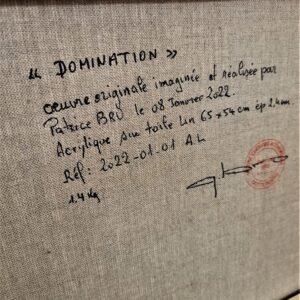 « DOMINATION »
œuvre originale imaginée et réalisée par
Patrice BRU le 08 Janvier 2022.
Acrylique sur toile lin 65 x 54 cm ep 2.4 cm.
Réf: 2022-01-01 A.L
1.4 Kg